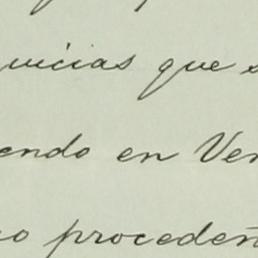 uicias que s
endo en Ven
o proceden